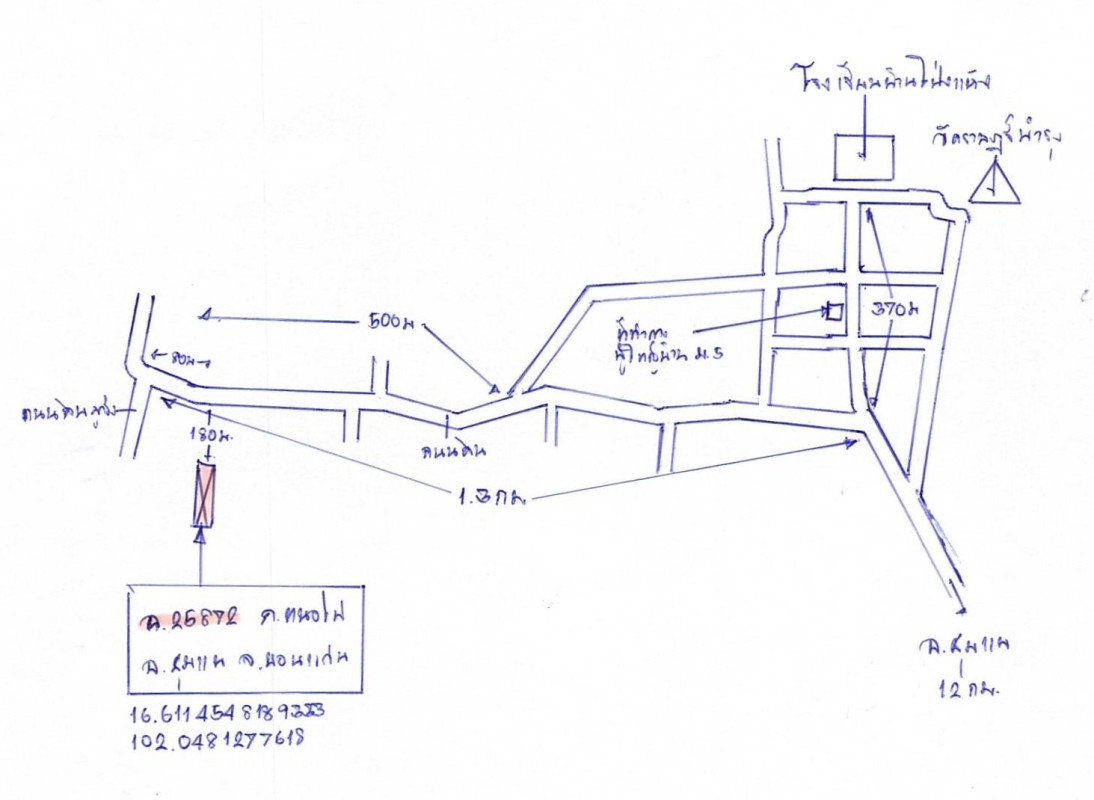 โรงเรียนบ้านโป่งแห้ง
วัดราษฎร์บำรุง
500ม
370ม
ที่ทำการ
ผู้ใหญ่บ้าน ม.5
80ม
ถนนดินลูกรัง
180ม.
ถนนดิน
1.3 กม.
ฉ.25872 ต.หนองไผ่
อ.ชุมแพ จ.ขอนแก่น
อ.ชุมแพ
12 กม.
102.0481277618